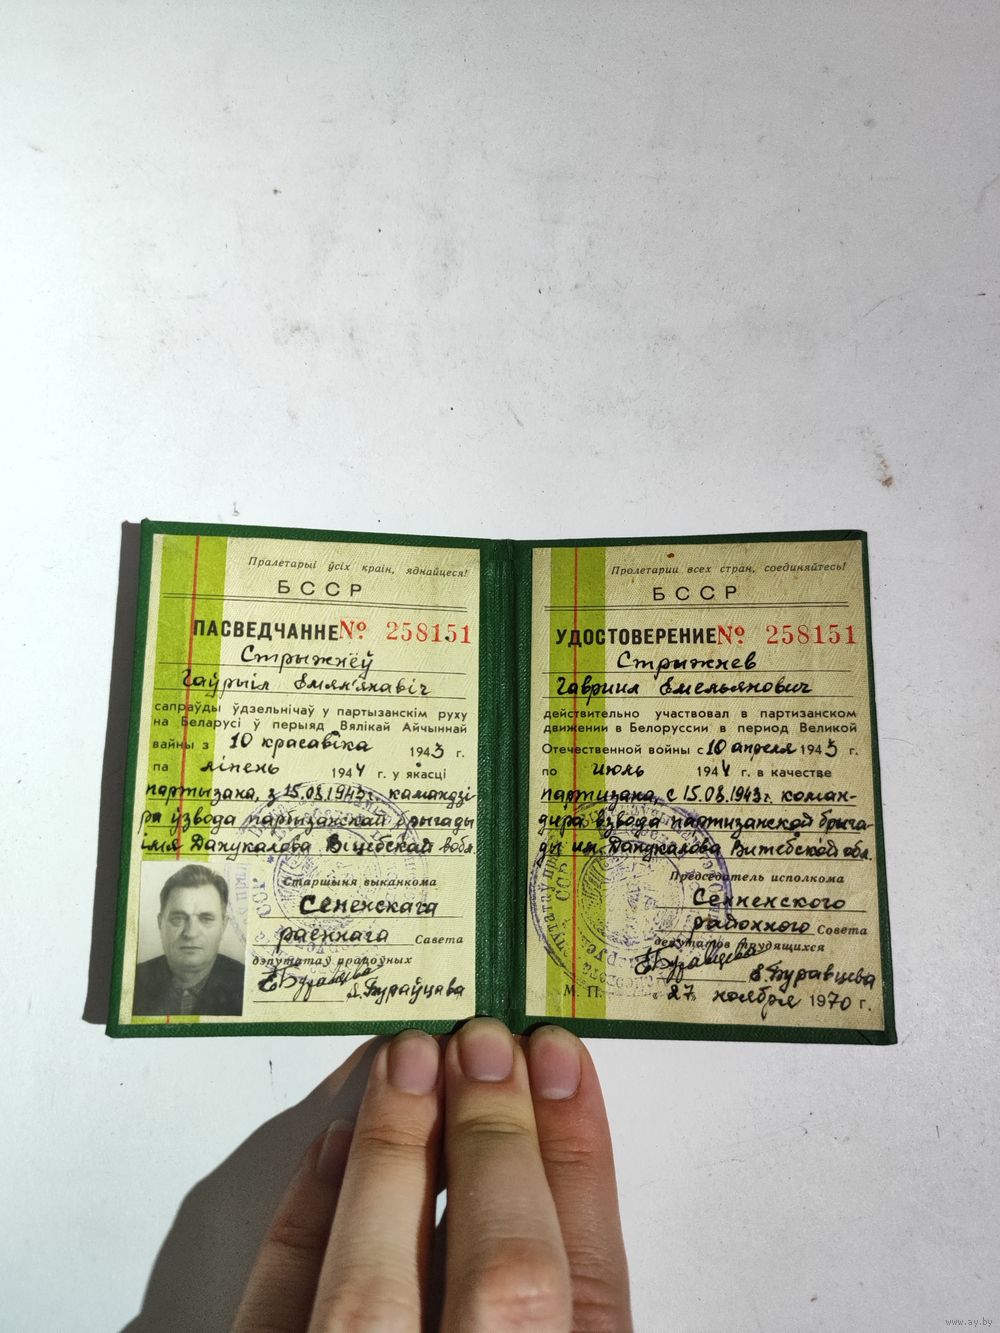 Пралетарыі ўсіх краін, яднайцеся!
БССР
ПАСВЕДЧАННЕ № 258151
Стрыжнёў
Гаўрыіл Емяльянавіч
сапраўды ўдзельнічаў у партызанскім руху
на Беларусі ў перыяд Вялікай Айчыннай
вайны з 10 красавіка 1943 г.
па ліпень 1944 г. у якасці
партызана, з 15.08.1943г. камандзі-
ра ўзвода партызанскай брыгады
імя Данукалова Віцебскай вобл.
Старшыня выканкома
Сененскага
раённага Савета
дэпутатаў працоўных
Е. Бураўцава
Пролетарии всех стран, соединяйтесь!
БССР
УДОСТОВЕРЕНИЕ № 258151
Стрижнев
Гавриил Емельянович
действительно участвовал в партизанском
движении в Белоруссии в период Великой
Отечественной войны с 10 апреля 1943 г.
по июль 1944 г. в качестве
партизана, с 15.08.1943г. коман-
дира взвода партизанской брига-
ды им. Данукалова Витебской обл.
Председатель исполкома
Сенненского
районного Совета
депутатов трудящихся
Е. Буравцева
М. П. "27" ноября 1970 г.
www.ay.by